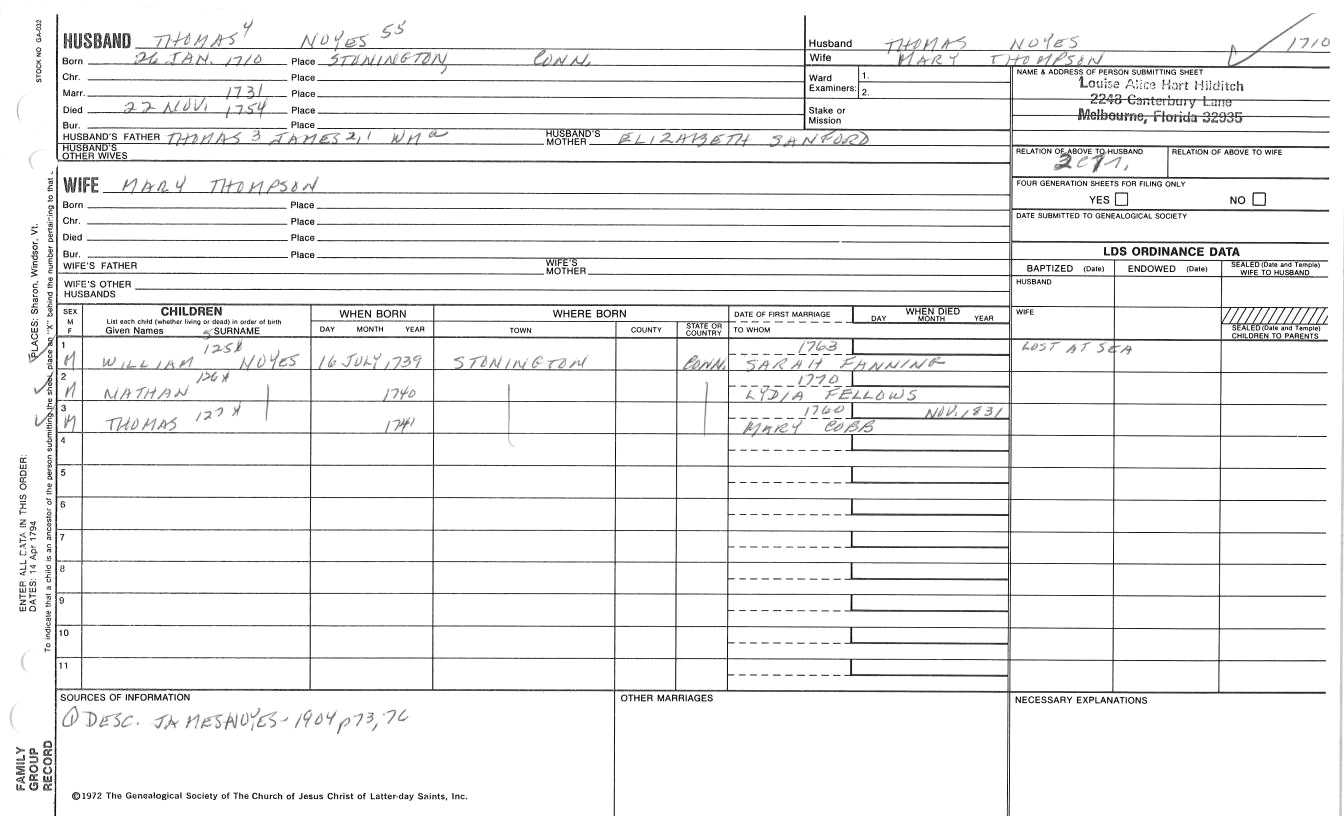 STOCK NO GA-032
HUSBAND THOMAS 4 NOYES 55
Born 26 JAN. 1710 Place STONINGTON, CONN.
Chr. Place
Marr. 1731 Place
Died 22 NOV. 1754 Place
Bur. Place
HUSBAND'S FATHER THOMAS 3 JAMES 2,1 WM a HUSBAND'S MOTHER ELIZABETH SANFORD
HUSBAND'S OTHER WIVES
Husband THOMAS NOYES 1710
Wife MARY THOMPSON
Ward Examiners: 1.
2.
Stake or Mission
NAME & ADDRESS OF PERSON SUBMITTING SHEET
Louise Alice Hart Hilditch
2243 Canterbury Lane
Melbourne, Florida 32935
RELATION OF ABOVE TO HUSBAND RELATION OF ABOVE TO WIFE
FOUR GENERATION SHEETS FOR FILING ONLY
YES NO
DATE SUBMITTED TO GENEALOGICAL SOCIETY
WIFE MARY THOMPSON
Born Place
Chr. Place
Died Place
Bur. Place
WIFE'S FATHER WIFE'S MOTHER
WIFE'S OTHER HUSBANDS
LDS ORDINANCE DATA
BAPTIZED (Date) ENDOWED (Date) SEALED (Date and Temple) WIFE TO HUSBAND
HUSBAND
WIFE
SEALED (Date and Temple) CHILDREN TO PARENTS
SEX M F CHILDREN WHEN BORN WHERE BORN DATE OF FIRST MARRIAGE WHEN DIED
List each child (whether living or dead) in order of birth
Given Names 5 SURNAME DAY MONTH YEAR TOWN COUNTY STATE OR COUNTRY TO WHOM DAY MONTH YEAR
1 125x 1763 LOST AT SEA
M WILLIAM NOYES 16 JULY, 1739 STONINGTON CONN. SARAH FANNING
2 126x 1770
M NATHAN 1740 LYDIA FELLOWS
3 127x 1760 NOV. 1831
M THOMAS 1741 MARY COBB
4
5
6
7
8
9
10
11
SOURCES OF INFORMATION OTHER MARRIAGES NECESSARY EXPLANATIONS
① DESC. JAMES NOYES - 1904 p 73, 76
©1972 The Genealogical Society of The Church of Jesus Christ of Latter-day Saints, Inc.
ENTER ALL DATA IN THIS ORDER:
DATES: 14 Apr 1794
PLACES: Sharon, Windsor, Vt.
To indicate that a child is an ancestor of the person submitting the sheet, place an "X" behind the number pertaining to that
FAMILY
GROUP
RECORD